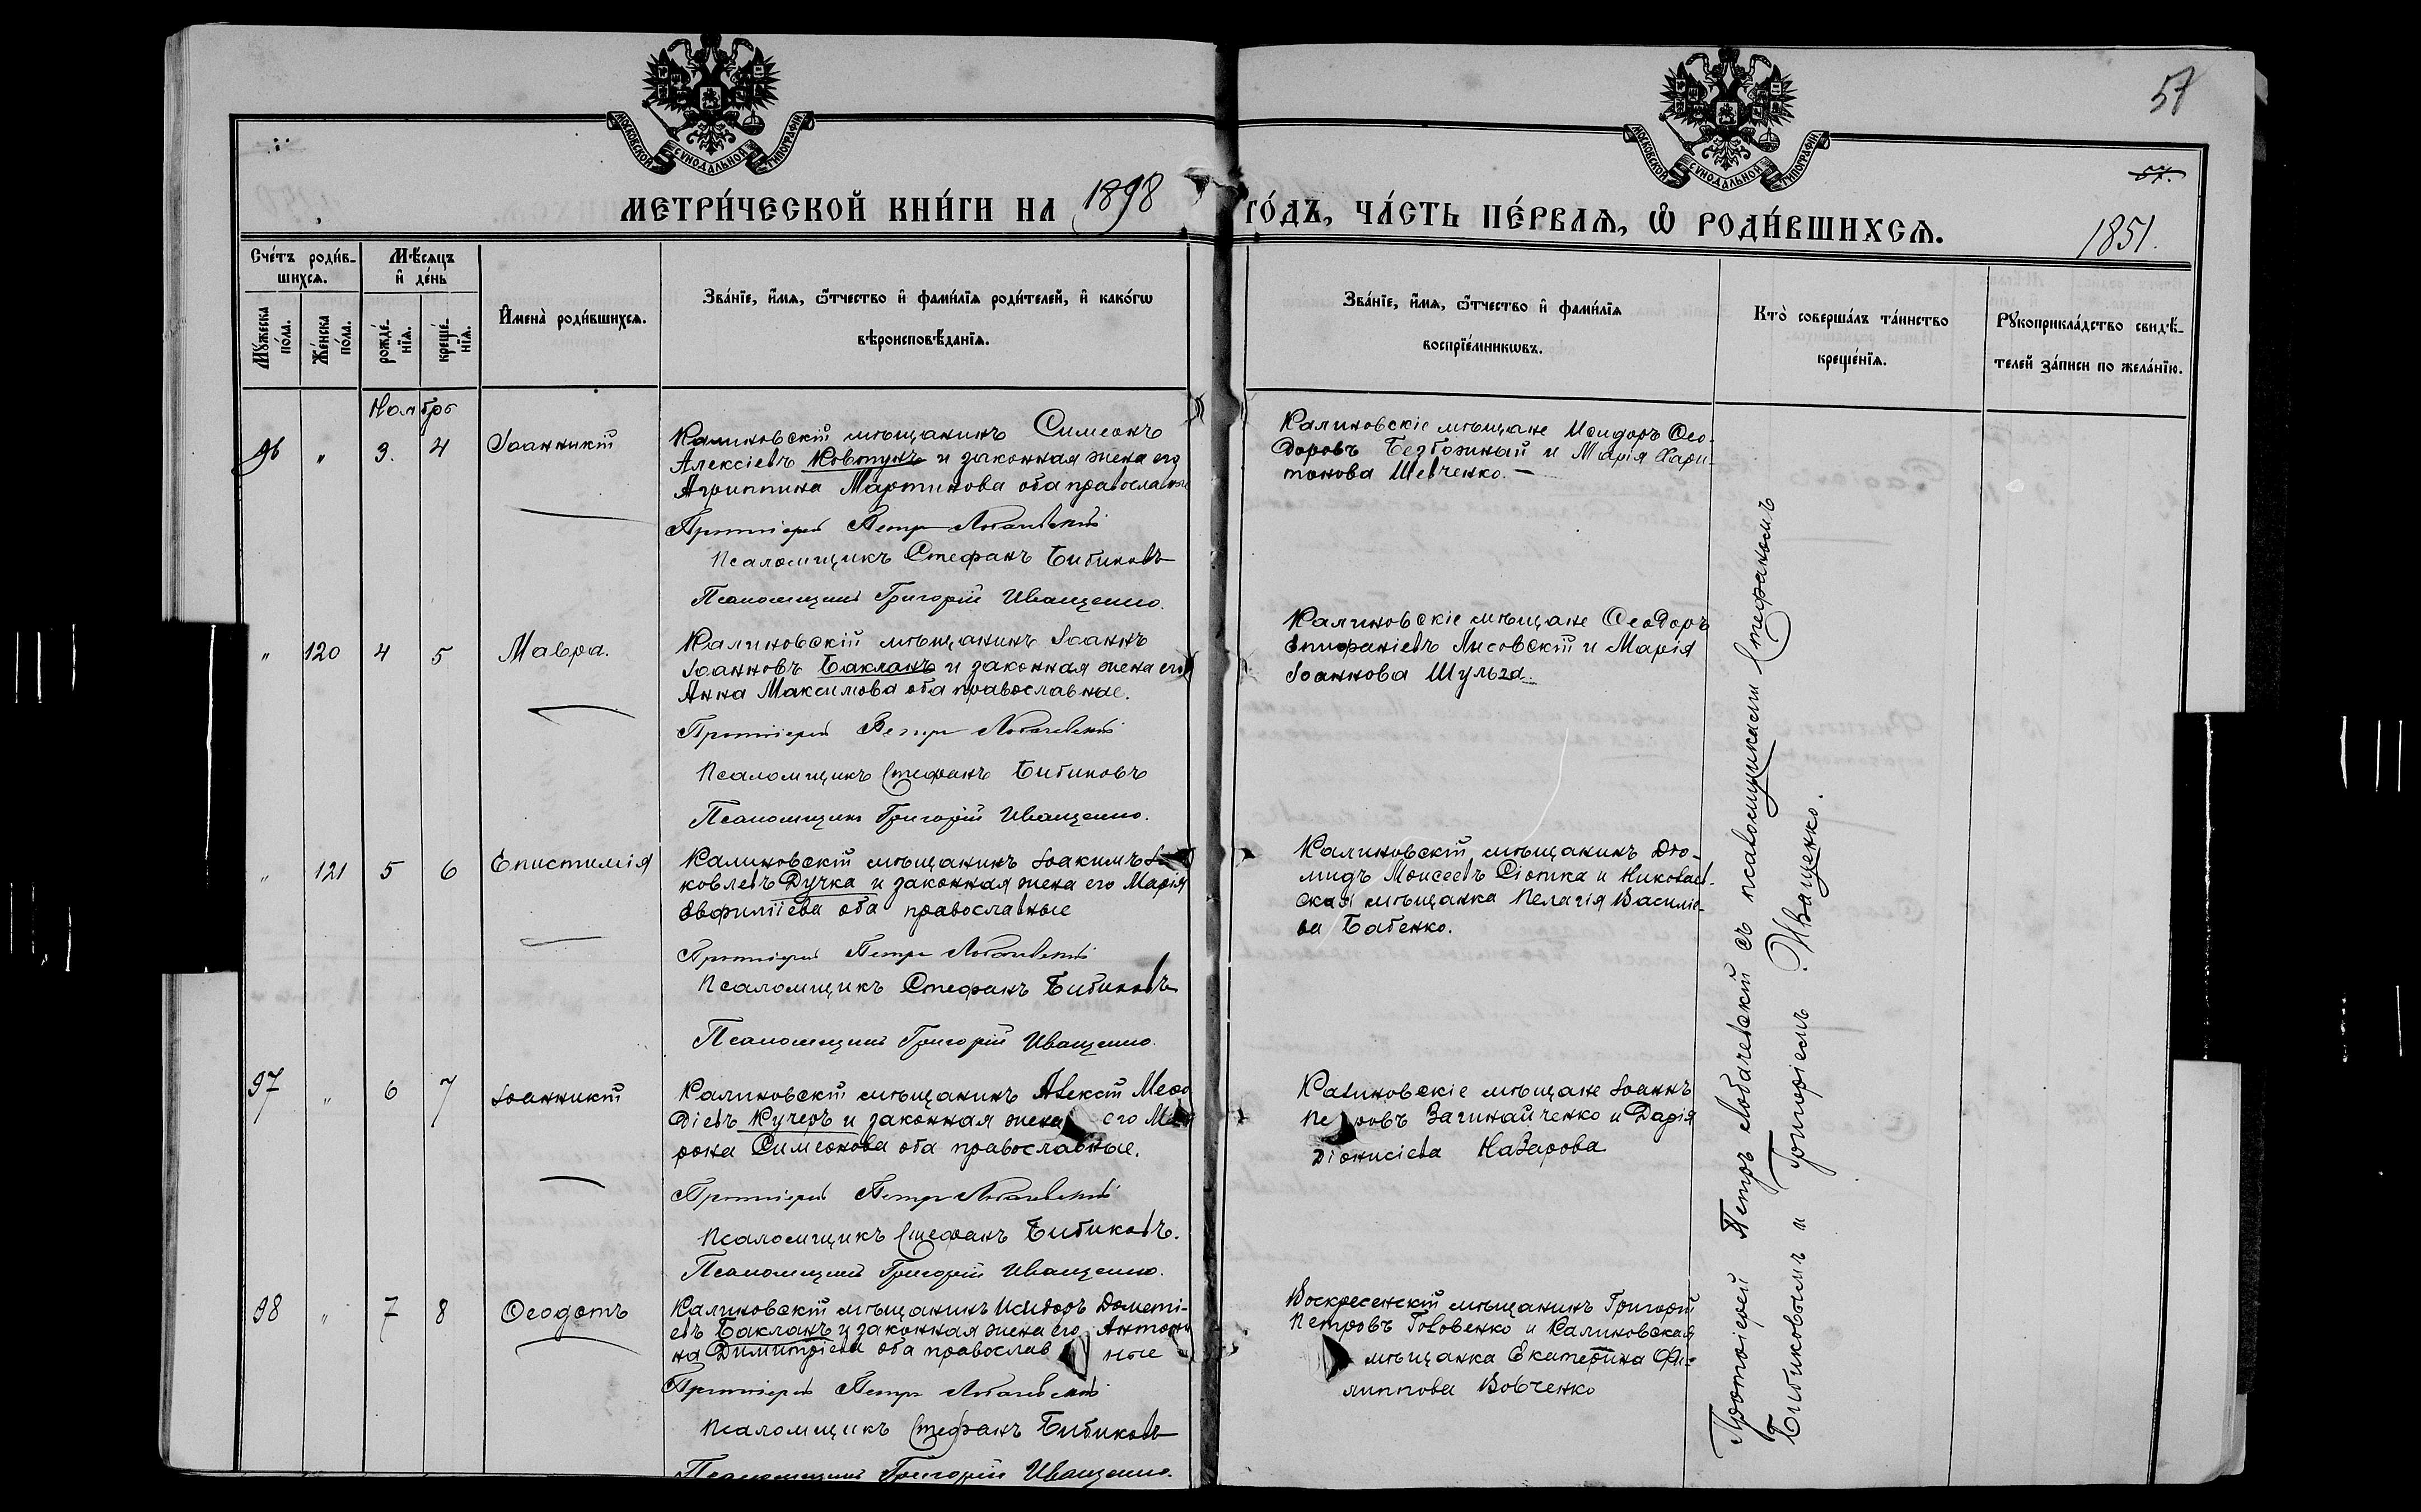 57
57.
МОСКОВСКОЙ СѴНОДАЛЬНОЙ ТИПОГРАФІИ
МОСКОВСКОЙ СѴНОДАЛЬНОЙ ТИПОГРАФІИ
МЕТРИ́ЧЕСКОЙ КНИ́ГИ НА 1898 ГО́ДЪ, ЧА́СТЬ ПЕ́РВАЯ, Ѡ РОДИ́ВШИХСЯ.
1851.
Сче́тъ роди́в-
шихся.
Му́жеска по́ла.
Же́нска по́ла.
Мѣ́сяцъ
и҆ де́нь
рожде́-
нїя.
креще́-
нїя.
И҆мена̀ роди́вшихся.
Зва́нїе, и҆́мя, ѻ҆́тчество и҆ фами́лїя роди́телей, и҆ како́гѡ
вѣроисповѣ́данїя.
Зва́нїе, и҆́мя, ѻ҆́тчество и҆ фами́лїя
воспрїе́мникѡвъ.
Кто̀ соверша́лъ та́инство
креще́нїя.
Рꙋкоприкла́дство свидѣ́-
телей за́писи по жела́нїю.
Ноябрь
96 " 3. 4 Іоанникій
Калиновскій мѣщанинъ Симеонъ
Алексіевъ Ковтунъ и законная жена его
Агриппина Мартинова оба православные
Протоіерей Петръ Лобачевскій
Псаломщикъ Стефанъ Бибиковъ
Псаломщикъ Григорій Иващенко.
Калиновскіе мѣщане Исидоръ Ѳео-
доровъ Безбожный и Марія Хари-
тонова Шевченко.
" 120 4 5 Мавра.
Калиновскій мѣщанинъ Іоаннъ
Іоанновъ Бакланъ и законная жена его
Анна Максимова оба православные.
Протоіерей Петръ Лобачевскій
Псаломщикъ Стефанъ Бибиковъ
Псаломщикъ Григорій Иващенко.
Калиновскіе мѣщане Ѳеодоръ
Епифаніевъ Лисовскій и Марія
Іоаннова Шульга.
" 121 5 6 Епистимія
Калиновскій мѣщанинъ Іоакимъ
ковлевъ Дучка и законная жена его Марія
Евфиміева оба православные
Протоіерей Петръ Лобачевскій
Псаломщикъ Стефанъ Бибиковъ
Псаломщикъ Григорій Иващенко.
Калиновскій мѣщанинъ Діо-
мидъ Моисеевъ Сіопика и Николаев-
ская мѣщанка Пелагія Василіе-
ва Бабенко.
97 " 6 7 Іоанникій
Калиновскій мѣщанинъ Алексій Меѳо
діевъ Кучеръ и законная жена его Мат
рона Симеонова оба православные.
Протоіерей Петръ Лобачевскій
Псаломщикъ Стефанъ Бибиковъ.
Псаломщикъ Григорій Иващенко.
Калиновскіе мѣщане Іоаннъ
Петровъ Загинайченко и Дарія
Діонисіева Назарова
98 " 7 8 Ѳеодотъ
Калиновскій мѣщанинъ Исидоръ Дометі-
евъ Бакланъ и законная жена его Антони
на Димитріева оба православные
Протоіерей Петръ Лобачевскій
Псаломщикъ Стефанъ Бибиковъ
Псаломщикъ Григорій Иващенко.
Воскресенскій мѣщанинъ Григорій
Петровъ Головенко и Калиновская
мѣщанка Екатерина Фи-
липпова Вовченко
Протоіерей Петръ Лобачевскій съ псаломщиками Стефаномъ
Бибиковымъ и Григоріемъ Иващенко.